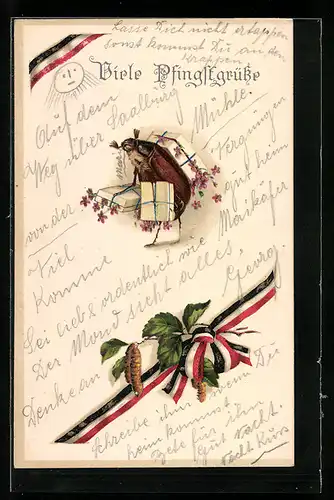 Lasse Dich nicht ertappen
sonst kommst Du an den
Krappen
Viele Pfingstgrüße
Auf dem
Weg über Saalburg
von der Mühle.
Kiel Vergnügen
Komme gut heim
Sei lieb & ordentlich wie Maikäfer
Der Mond sieht alles, Georg.
Denke an
Schreibe ihm wenn Du
heim kommst
Bete für ihn
Gut Nacht
Nacht Kuss